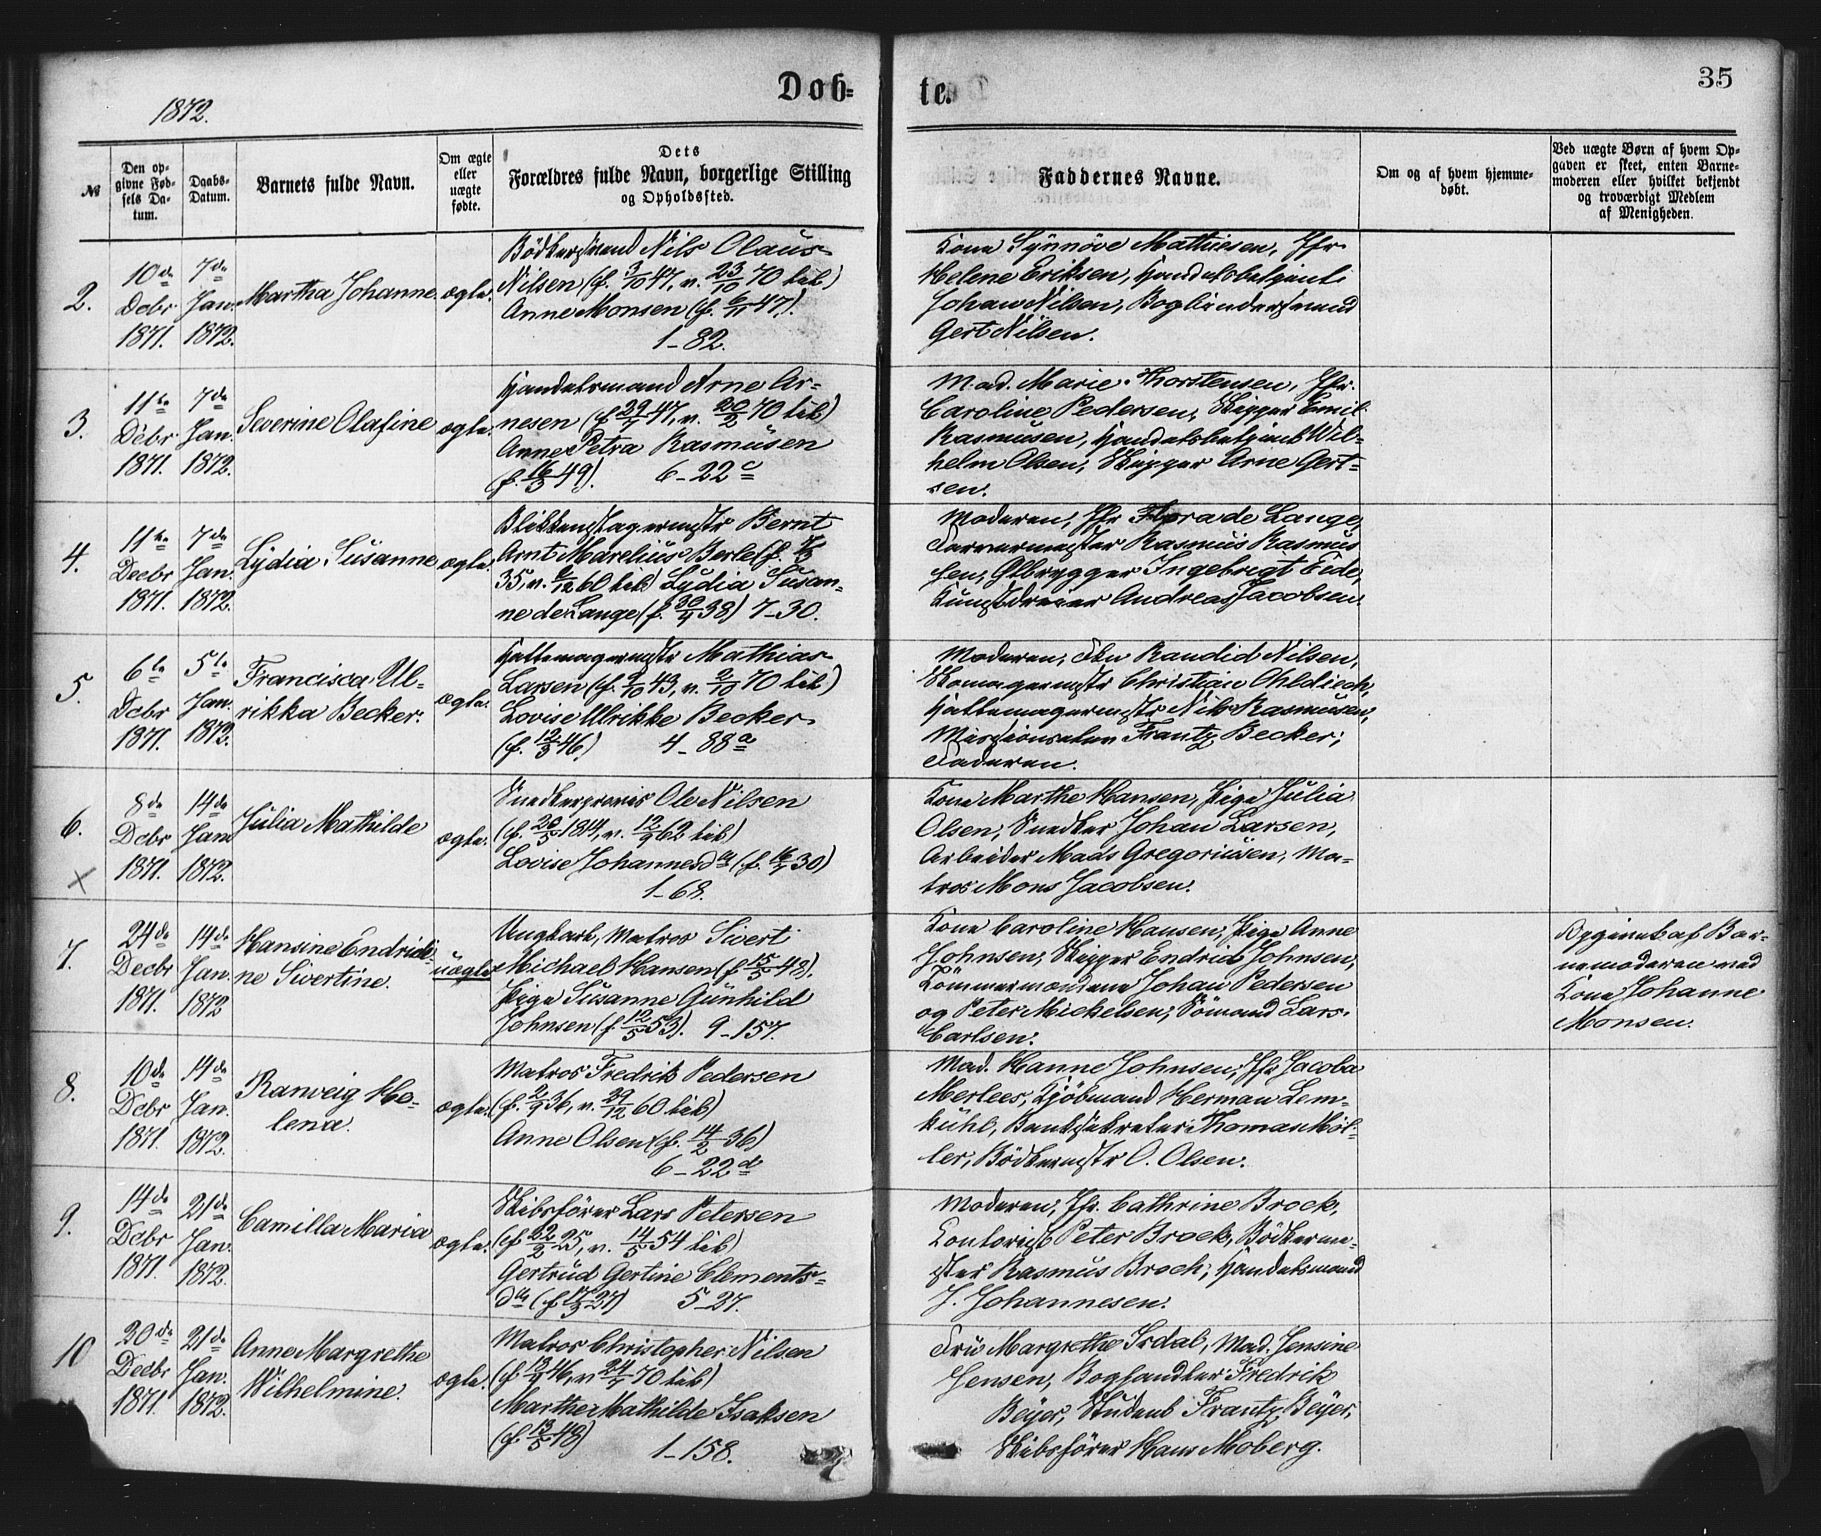 1872.
Døb-
te.
35
№
Den op-
givne Fød-
sels Da-
tum.
Daabs-
Datum.
Barnets fulde Navn.
Om ægte
eller
uægte
fødte.
Dets
Forældres fulde Navn, borgerlige Stilling
og Opholdssted.
Faddernes Navne.
Om og af hvem hjemme-
døbt.
Ved uægte Børn af hvem Op-
gaven er skeet, enten Barne-
moderen eller hvilket bekjendt
og troværdigt Medlem
af Menigheden.
2.
10de
Dcbr
1871.
7de
Jan.
1872.
Martha Johanne
ægte.
Bødkersvend Nils Olaus
Nilsen (f. 3/10 47, v. 23/10 70 lib)
Anne Monsen (f. 6/11 47).
1-82.
Kone Synnöve Mathiesen, Jfr
Helene Eriksen, Handelsbetjent
Johan Nilsen, Bogbindersvend
Gert Nilsen.
3.
11te
Debr
1871.
7de
Jan.
1872.
Severine Olafine
ægte.
Handelsmand Arne Ar-
nesen (f. 29/7 47, v. 20/2 70 lib)
Anne Petra Rasmüsen
(f. 16/3 49). 6-22c
Mad. Marie Thorstensen, Jfr.
Caroline Pedersen, Skipper Emil
Rasmusen, Handelsbetjent Wil-
helm Olsen, Skipper Arne Gert-
sen.
4.
11te
Decbr
1871.
7de
Jan.
1872.
Lydia Süsanne
ægte.
Blikkenslagermstr Bernt
Arnt Marelius Berle (f.
35, v. 9/12 60 lib) Lydia Susan-
ne de Lange (f. 30/9 38) 7-30.
Moderen, Jfr Flora de Lange,
Farvermester Rasmus Rasmus
sen, Ølbrygger Ingebrigt Eide,
Kunstdreier Andreas Jacobsen.
5.
6te
Dcbr
1871.
5te
Jan.
1872.
Francisca Ul-
rikka Becker.
ægte.
Hattemagermstr Mathias
Larsen (f. 9/10 43, v. 2/10 70 lib)
Lovise Ulrikke Becker
(f. 12/3 46) 4-88a
Moderen, Randid Nilsen,
Skomagermstr Christian Ohldieck,
Hattemagermstr Nils Rasmusen,
Missionselev Frantz Becker;
Faderen.
6.
8de
Dcbr
1871.
14de
Jan
1872.
Julia Mathilde
ægte.
Snedkersvend Ole Nilsen
(f. 20/5 1814, v. 12/9 62 lib)
Lovise Johannesdtr (f. 16/7 30)
1-68.
Kone Marthe Hansen, Pige Julia
Olsen, Snedker Johan Larsen,
Arbeider Mads Gregoriüsen, Ma-
tros Mons Jacobsen.
7.
24de
Decbr
1871.
14de
Jan.
1872
Hansine Endridi-
ne Sivertine.
uægte
Ungkarl, Matros Sivert
Michael Hansen (f 15/5 49).
Pige Susanne Günhild
Johnsen (f 12/5 53). 9-157.
Kone Caroline Hansen; Pige Anne
Johnsen; Skipper Endrid Johnsen,
Tömmermændene Johan Pedersen
og Peter Mickelsen; Sömand Lars
Carlsen.
Opgivet af Bar-
nemoderen ved
Kone Johanne
Monsen.
8.
10de
Dcbr
1871.
14de
Jan.
1872.
Ranveig He-
lena.
ægte.
Matros Fredrik Pedersen
(f. 2/9 36, v. 29/12 60 lib)
Anne Olsen (f. 14/2 36)
6-22d
Mad. Hanne Johnsen; Jfr Jacoba
Merlees, Kjöbmand Herman Lem-
kühl, Banksekretær Thomas Möl-
ler, Bödkermstr O. Olsen.
9.
14de
Dcbr
1871.
21de
Jan.
1872.
Camilla Maria
ægte.
Skibsförer Lars Petersen
(f 22/2 25, v. 14/5 54 lib)
Gertrud Gertine Clements-
dtr (f. 17/3 27) 5-27.
Moderen; Jfr. Cathrine Brock,
Kontorist Peter Brock, Bödkerme-
ster Rasmus Broch; Handelsmand
J. Johannesen.
10
20de
Decbr
1871.
21de
Jan.
1872.
Anne Margrethe
Wilhelmine.
ægte.
Matros Christopher Nilsen
(f. 13/9 46, v 24/7 70 lib)
Marthe Mathilde Isaksen
(f. 13/5 48)
1-158.
Frü Margrethe Irdal, Mad. Jensine
Jensen, Boghandler Fredrik
Beyer, Student Frantz Beyer,
Skibsförer Hans Moberg.